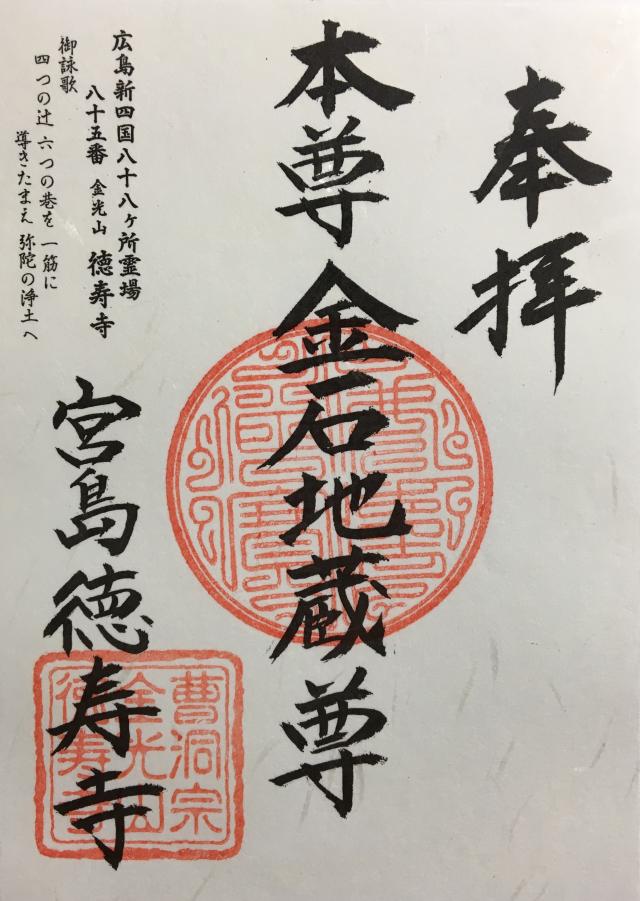 奉拝
本尊 金石地蔵尊
広島新四国八十八ヶ所霊場
八十五番 金光山 徳寿寺
御詠歌
四つの辻 六つの巷を 一筋に
導きたまえ 弥陀の浄土へ
宮島徳寿寺
曹洞宗
金光山
徳寿寺